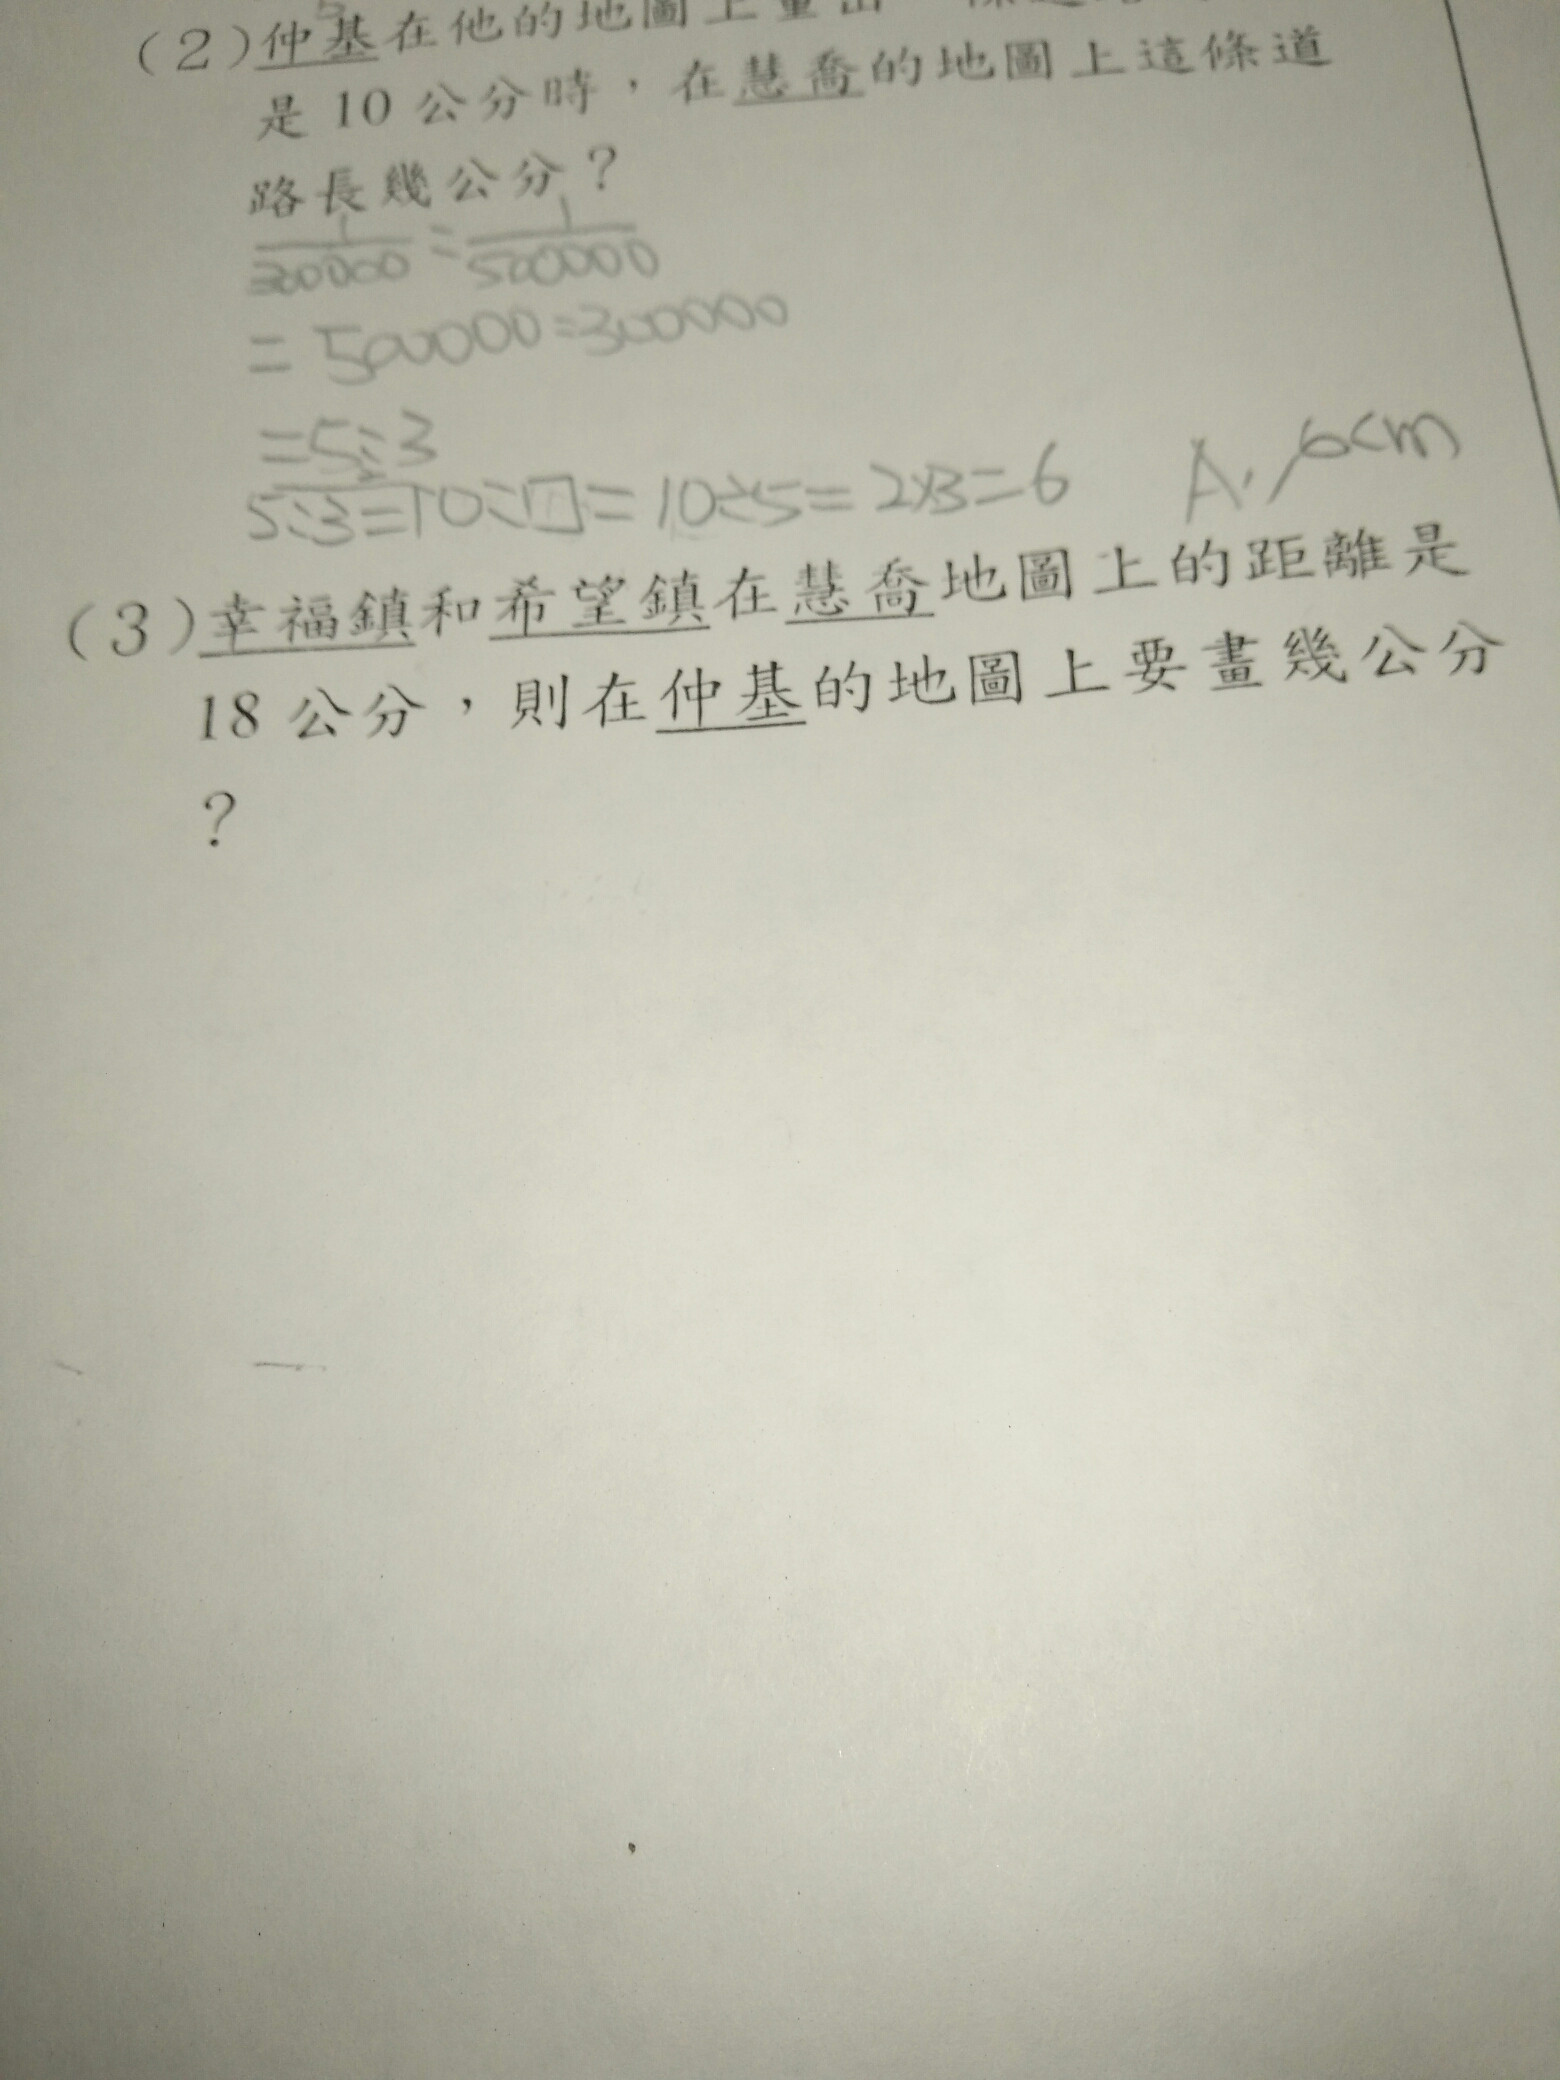 (2)仲基在他的地圖上量出一條道
是10公分時，在慧喬的地圖上這條道
路長幾公分？
1/300000 = 1/500000
= 500000=300000
=5:3
5:3=10:□=10÷5=2×3=6 A. 6cm
(3)幸福鎮和希望鎮在慧喬地圖上的距離是
18公分，則在仲基的地圖上要畫幾公分
？